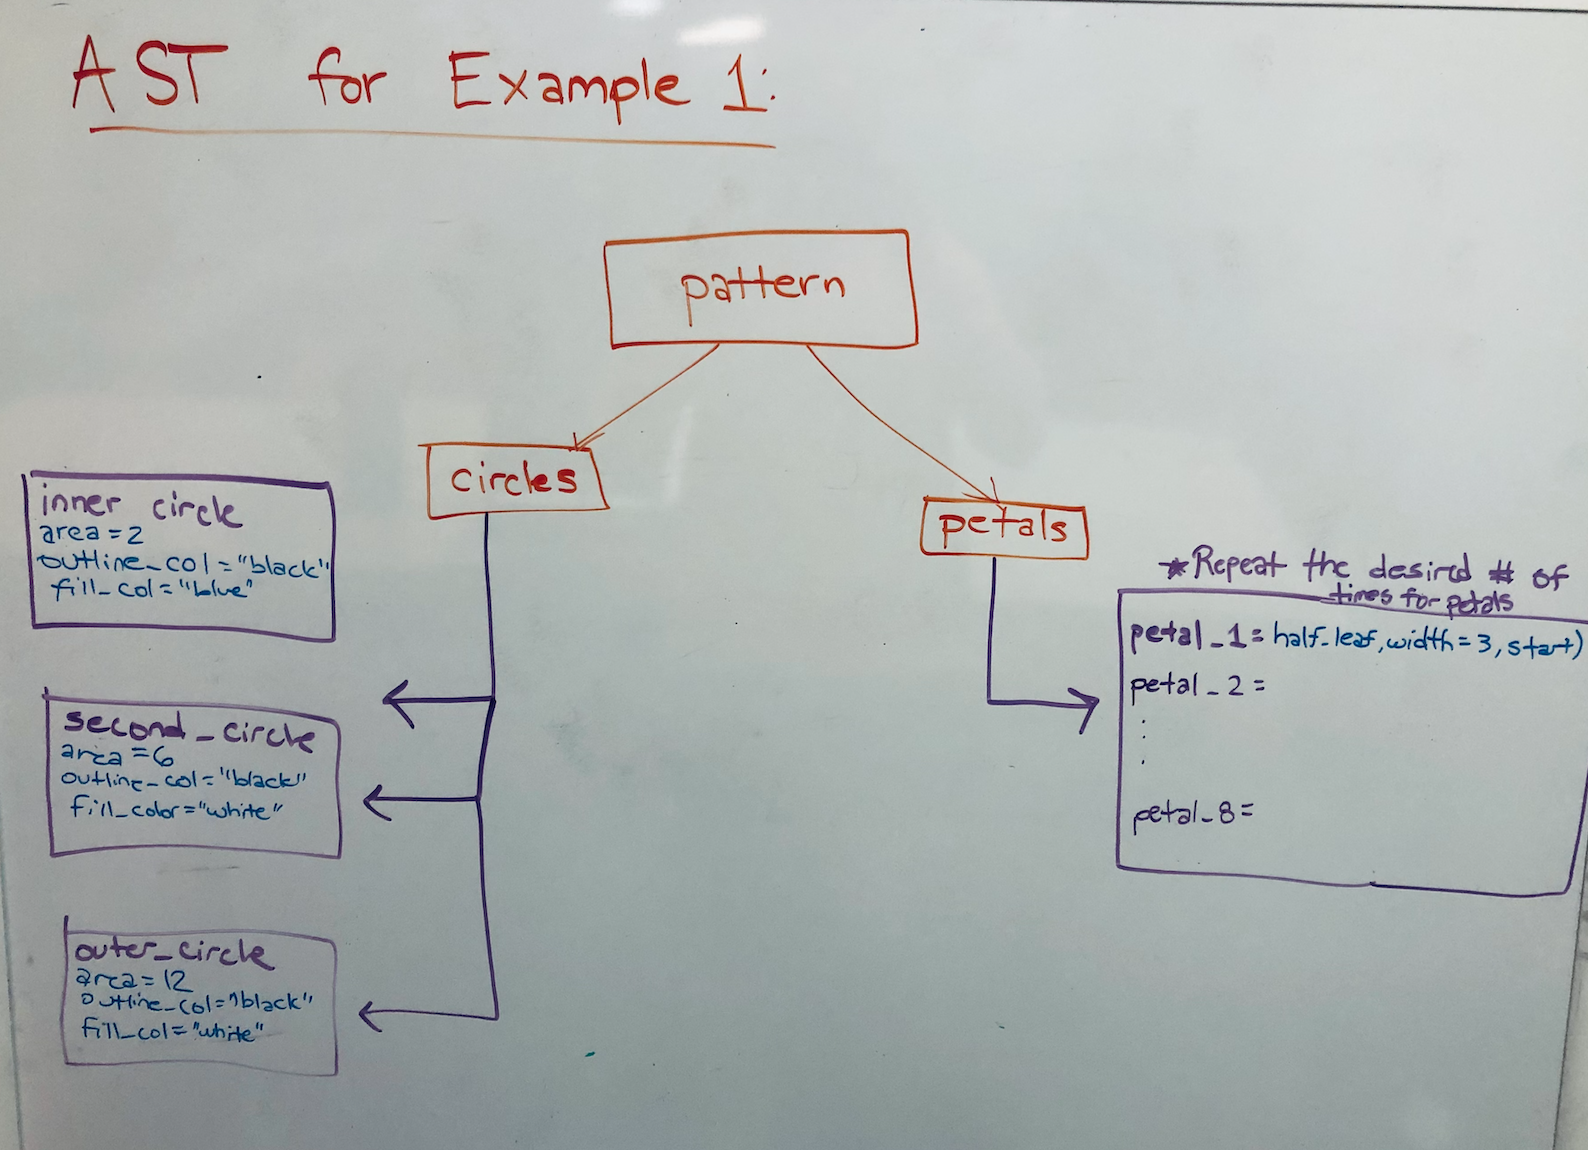 AST for Example 1:
pattern
circles
petals
inner circle
area = 2
outline_col = "black"
fill_col = "blue"
second_circle
area = 6
outline_col = "black"
fill_color = "white"
outer_circle
area = 12
outline_col = "black"
fill_col = "white"
*Repeat the desired # of
times for petals
petal_1 = half_leaf, width = 3, start)
petal_2 =
petal_8 =